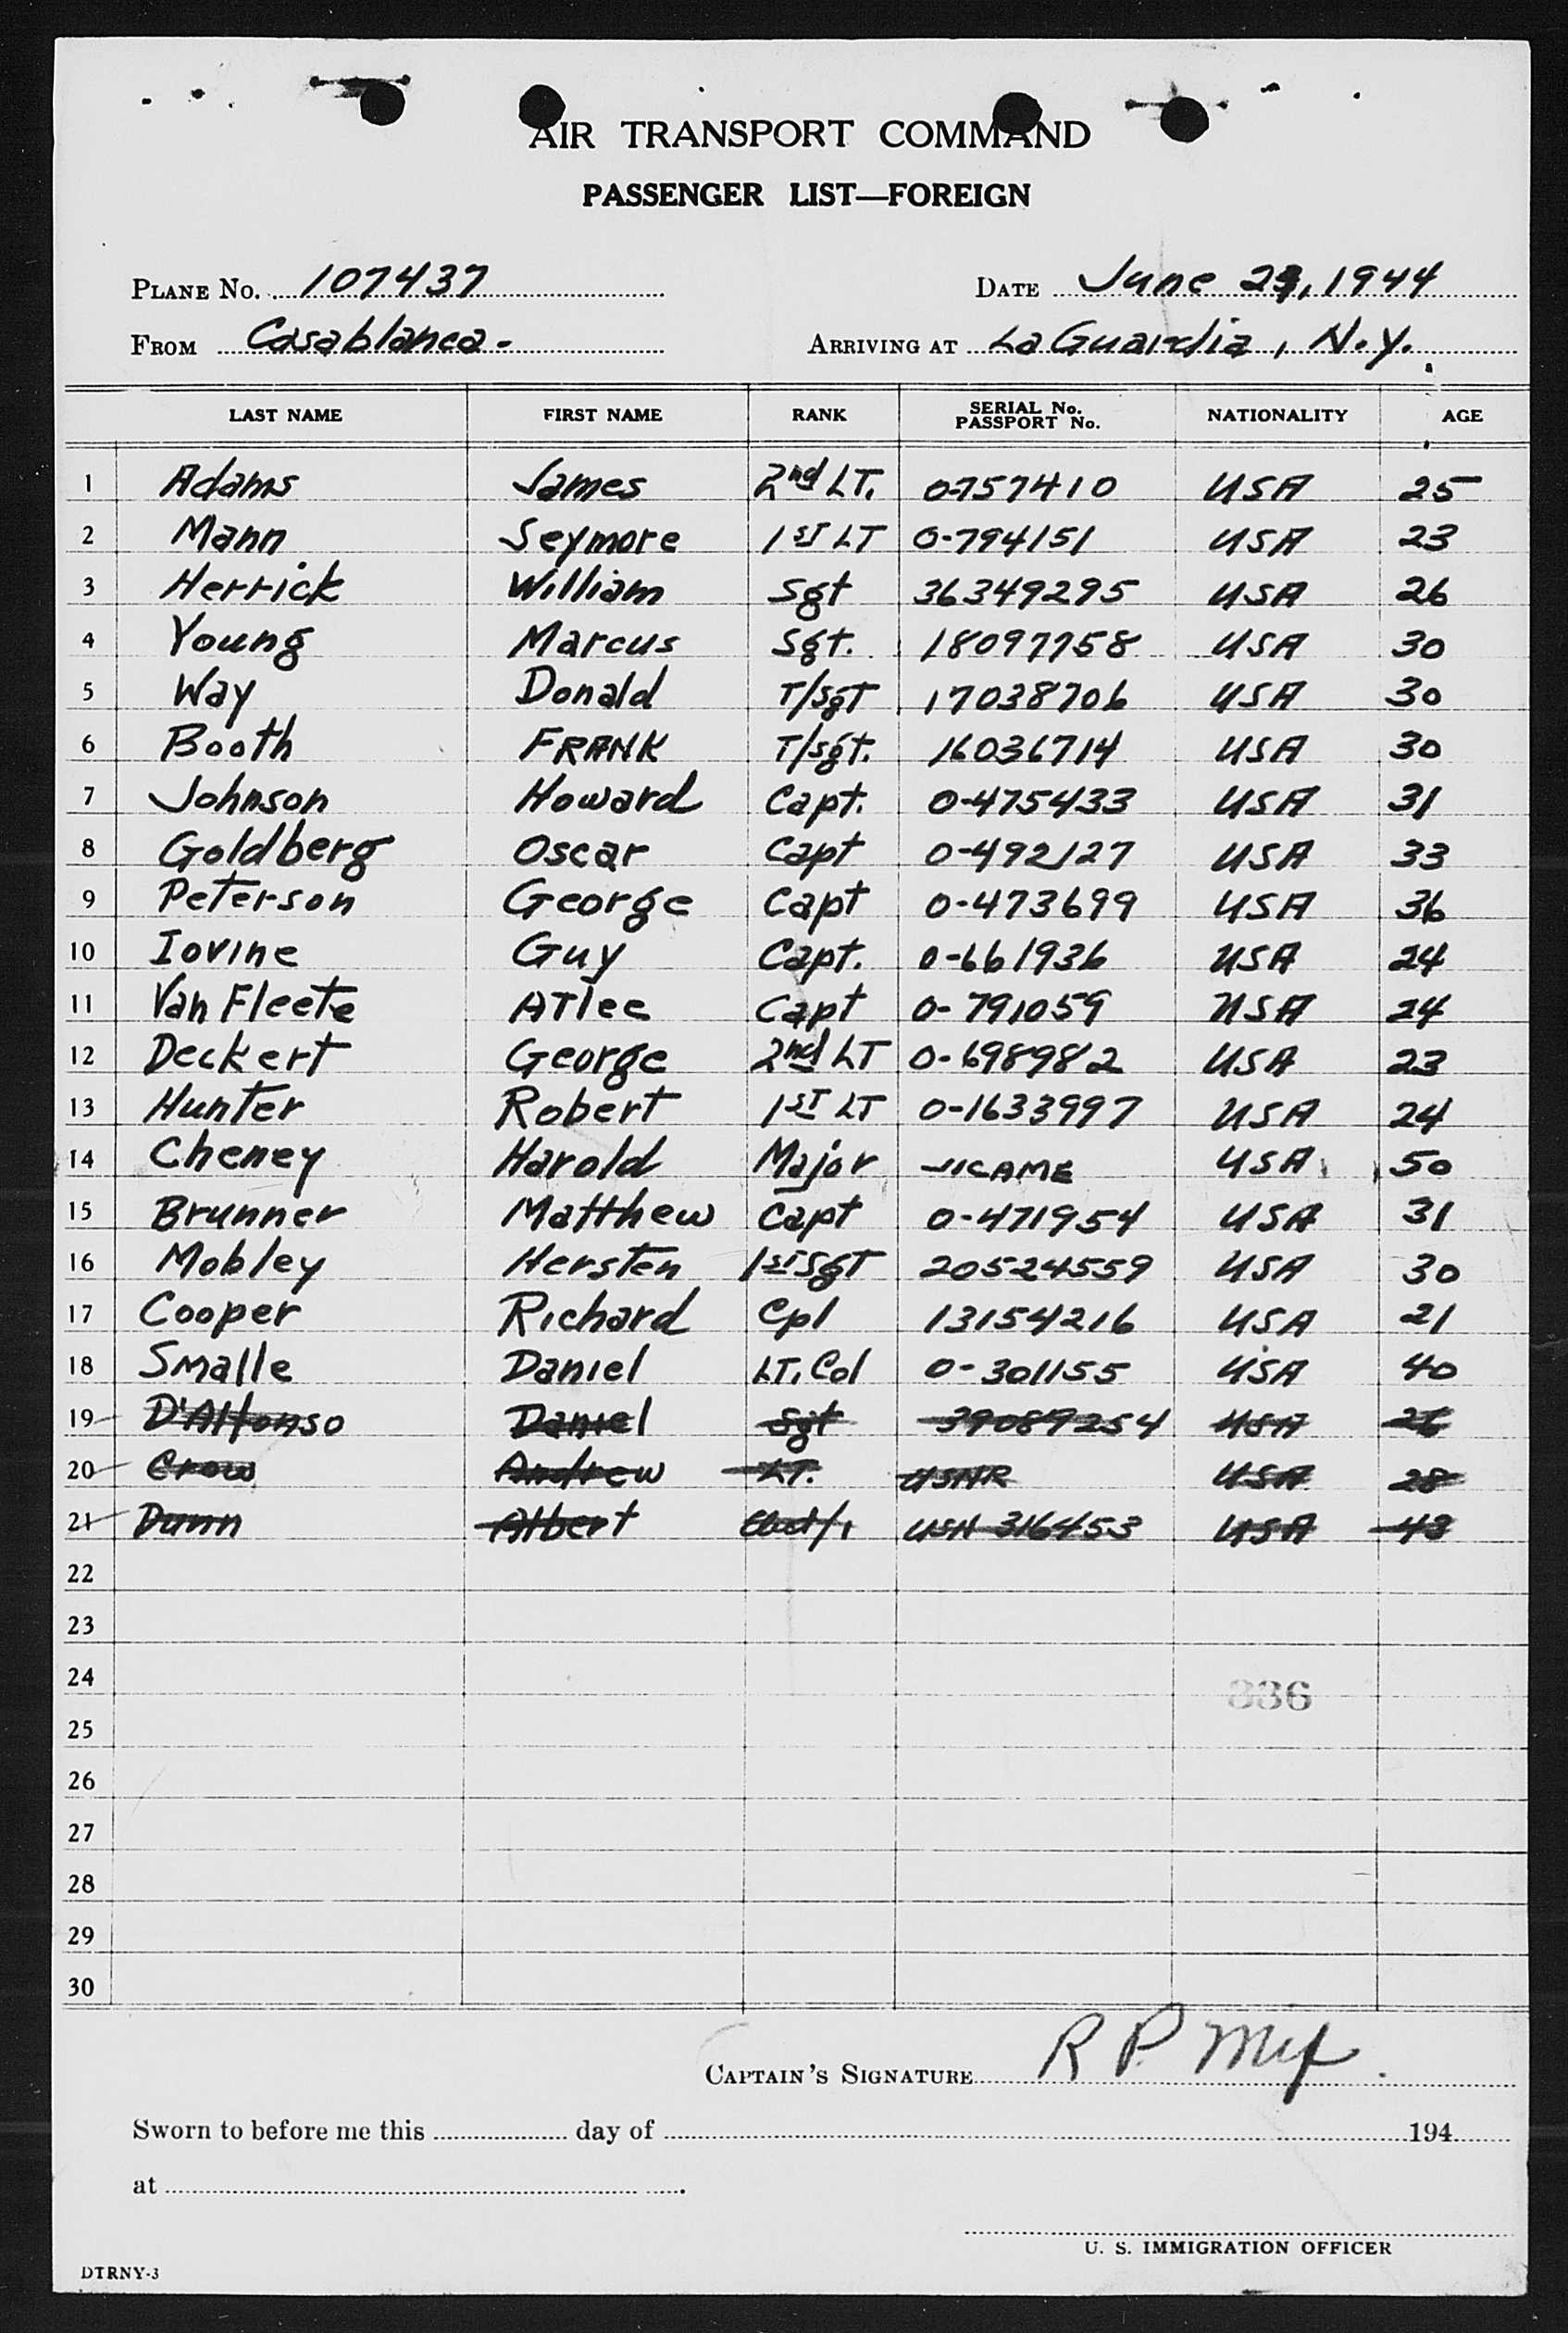 AIR TRANSPORT COMMAND
PASSENGER LIST—FOREIGN
PLANE No. 107437 DATE June 23, 1944
FROM Casablanca - ARRIVING AT La Guardia, N.Y.
LAST NAME FIRST NAME RANK SERIAL No. PASSPORT No. NATIONALITY AGE
1 Adams James 2nd LT. 0-757410 USA 25
2 Mann Seymore 1ST LT 0-794151 USA 23
3 Herrick William Sgt 36349295 USA 26
4 Young Marcus Sgt. 18097758 USA 30
5 Way Donald T/Sgt 17038706 USA 30
6 Booth FRANK T/sgt. 16036714 USA 30
7 Johnson Howard Capt. 0-475433 USA 31
8 Goldberg Oscar Capt 0-492127 USA 33
9 Peterson George Capt 0-473699 USA 36
10 Iovine Guy Capt. 0-661936 USA 24
11 Van Fleete ATlee Capt 0-791059 USA 24
12 Deckert George 2nd LT 0-698982 USA 23
13 Hunter Robert 1ST LT 0-1633997 USA 24
14 Cheney Harold Major USA 50
15 Brunner Matthew Capt 0-471954 USA 31
16 Mobley Hersten 1st Sgt 20524559 USA 30
17 Cooper Richard Cpl 13154216 USA 21
18 Smalle Daniel LT. Col 0-301155 USA 40
19 D'Alfonso Daniel Sgt 39089254 USA 26
20 Crow Andrew LT. USNR USA 28
21 Dunn Albert USN 316453 USA 43
22
23
24
336
25
26
27
28
29
30
CAPTAIN'S SIGNATURE R P
Sworn to before me this day of 194
at
U. S. IMMIGRATION OFFICER
DTRNY-3